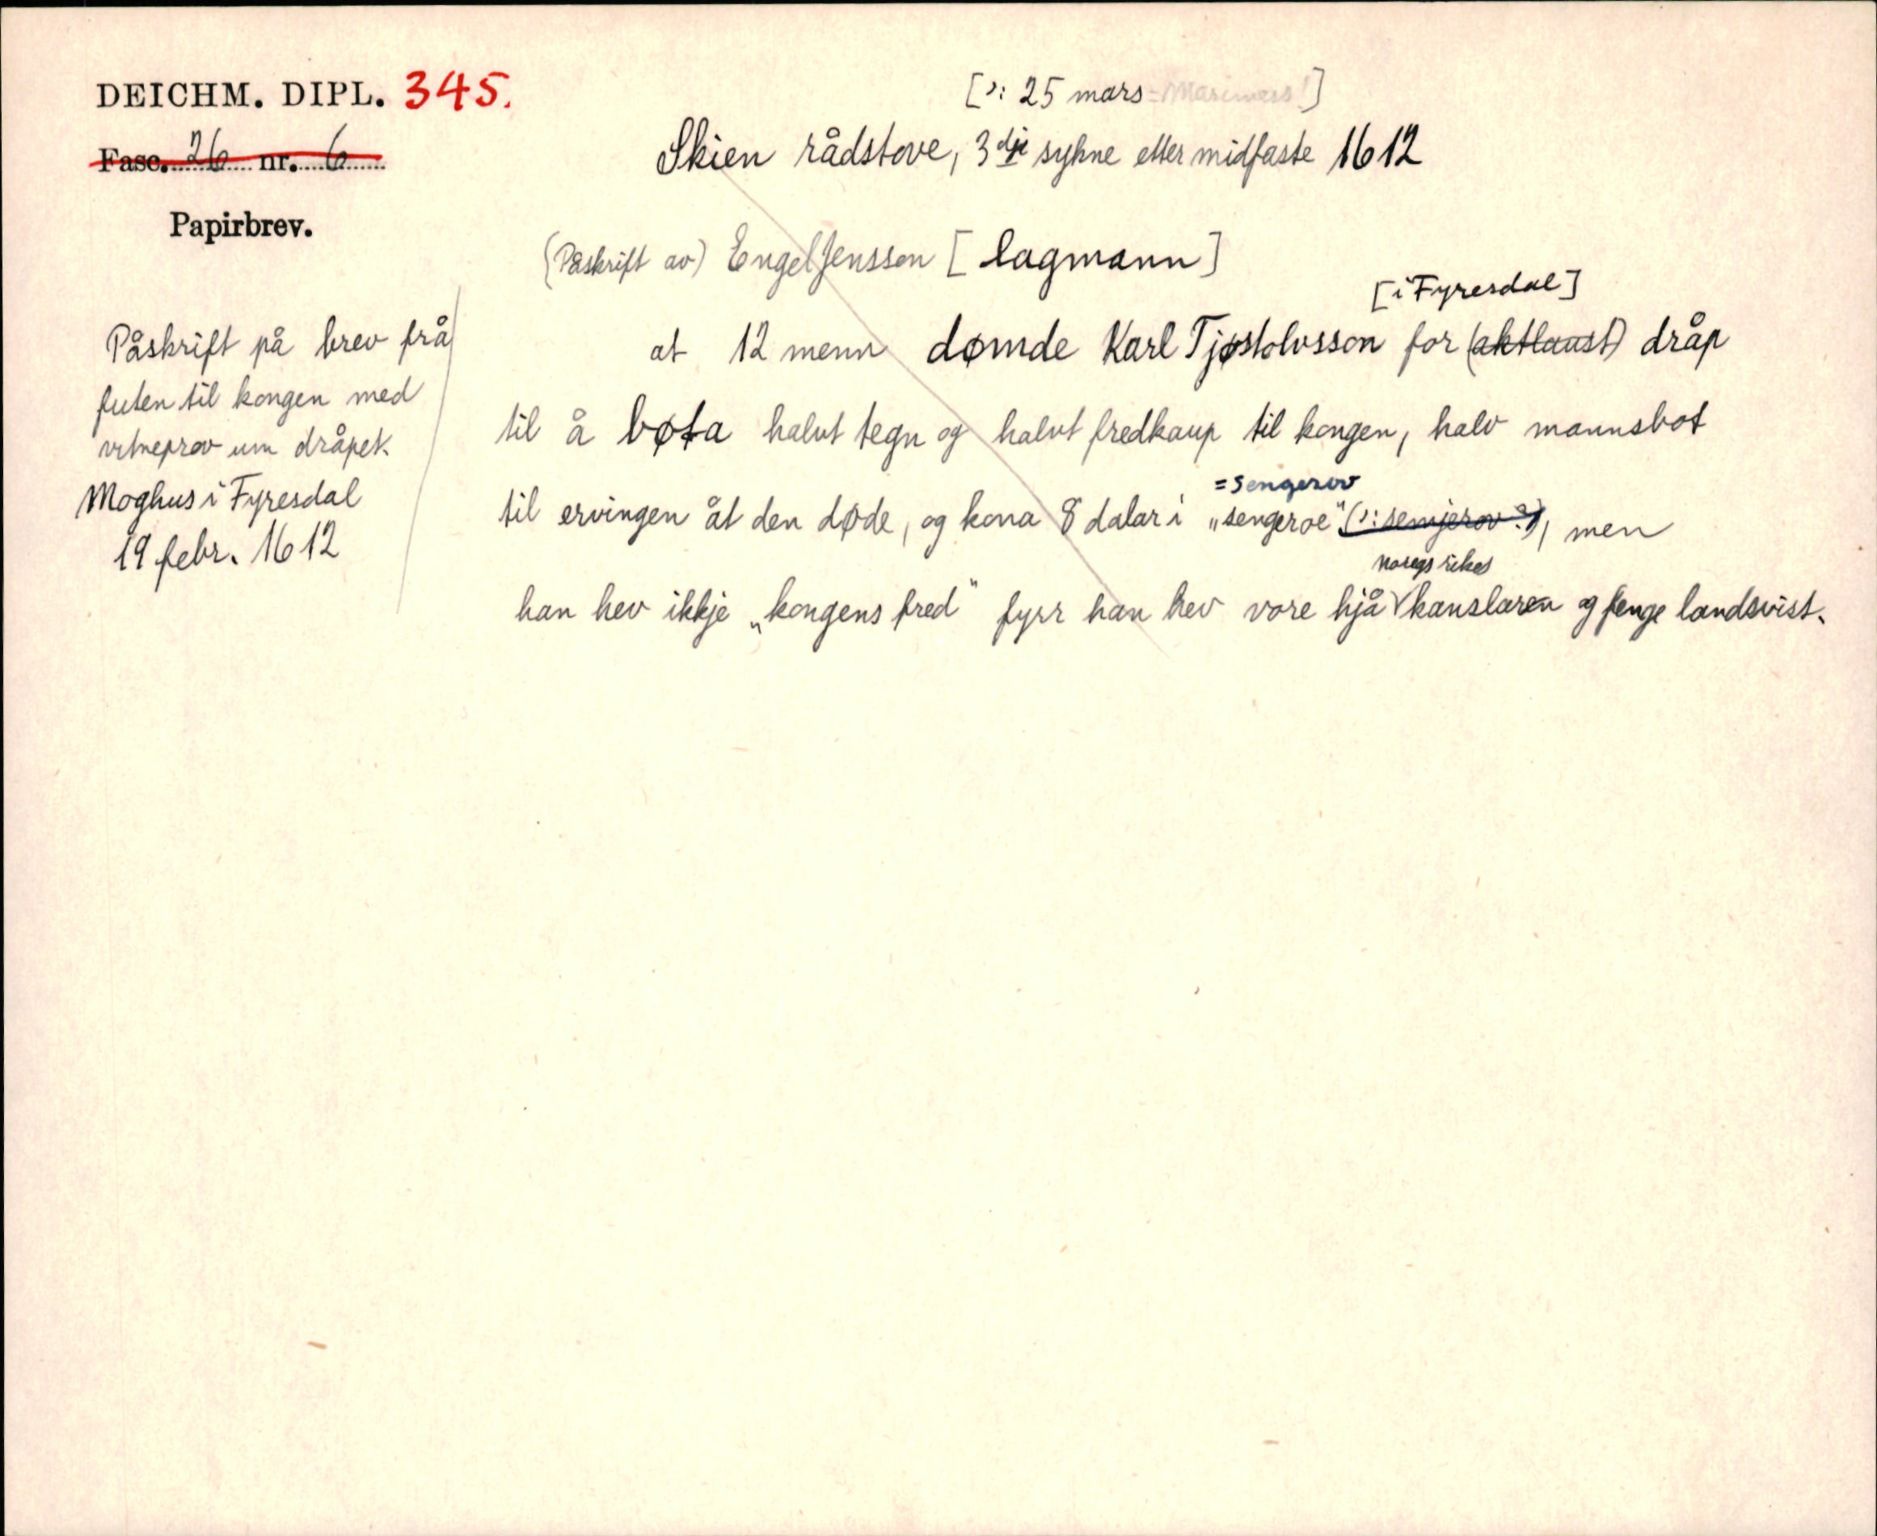 DEICHM. DIPL. 345.
Fasc. 26 nr. 6
Papirbrev.
[ɔ: 25 mars = Marimess!]
Skien rådstove, 3dje sykne etter midfaste 1612
(Påskrift av) Engel Jensson [lagmann]
[i Fyresdal]
at 12 menn dømde Karl Tjøstolvsson for (aktlaust) dråp
til å bøta halvt tegn og halvt fredkaup til kongen, halv mannsbot
= sengerov
til ervingen åt den døde, og kona 8 dalar i „sengeroe" (ɔ: semjerov?), men
noregs rikes
han hev ikkje „kongens fred" fyrr han hev vore hjå kanslaren og fenge landsvist.
Påskrift på brev frå
futen til kongen med
vitneprov um dråpet.
Moghus i Fyresdal
19 febr. 1612